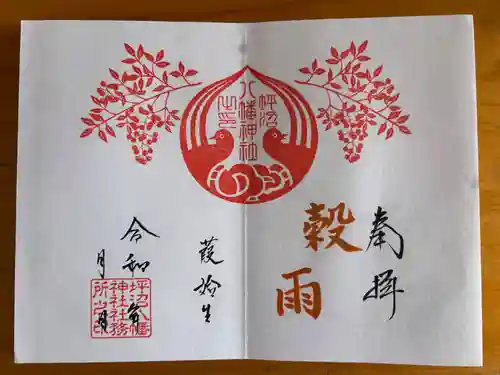 奉拝
穀雨
坪沼
八幡神社
之印
葭始生
令和 年
月 日
坪沼八幡
神社社務
所之印